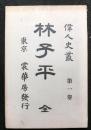 偉人史叢
第一巻
林子平 全
東京 裳華房發行